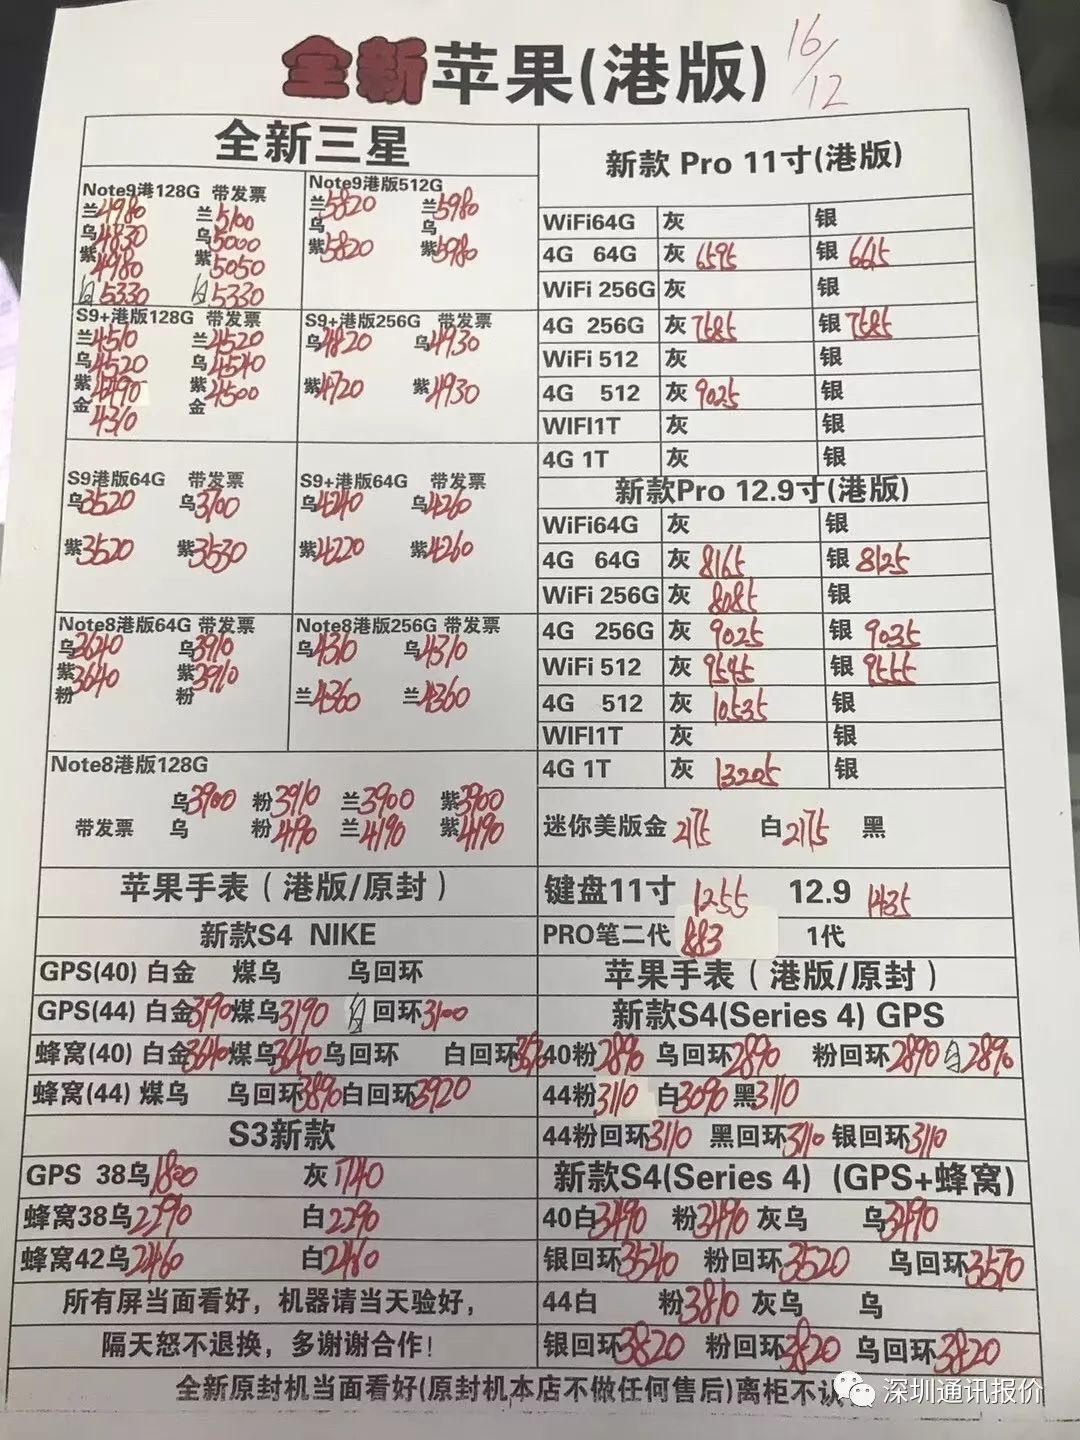 全新苹果(港版) 16/12
全新三星
Note9港128G 带发票
兰4980 兰5100
乌4830 乌5000
紫4980 紫5050
白5330 白5330
Note9港版512G
兰5820 兰5980
乌 乌
紫5820 紫5980
S9+港版128G 带发票
兰4510 兰4520
乌4520 乌4540
紫4490 紫4500
金4310 金
S9+港版256G 带发票
乌4820 乌4930
紫4720 紫4930
S9港版64G 带发票
乌3520 乌3700
紫3520 紫3530
S9+港版64G 带发票
乌4240 乌4260
紫4220 紫4260
Note8港版64G 带发票
乌3640 乌3910
紫3640 紫3910
粉 粉
Note8港版256G 带发票
乌4310 乌4310
兰4360 兰4360
Note8港版128G
乌3900 粉3910 兰3900 紫3900
带发票 乌 粉4190 兰4190 紫4190
苹果手表（港版/原封）
新款S4 NIKE
GPS(40) 白金 煤乌 乌回环
GPS(44) 白金3190 煤乌3190 白回环3100
蜂窝(40) 白金3640 煤乌3640 乌回环 白回环
蜂窝(44) 煤乌 乌回环3890 白回环3920
S3新款
GPS 38乌1800 灰1740
蜂窝38乌2290 白2290
蜂窝42乌2460 白2480
所有屏当面看好，机器请当天验好，
隔天怒不退换，多谢谢合作！
新款 Pro 11寸(港版)
WiFi64G 灰 银
4G 64G 灰 6595 银 6615
WiFi 256G 灰 银
4G 256G 灰 7585 银 7585
WiFi 512 灰 银
4G 512 灰 9025 银
WIFI1T 灰 银
4G 1T 灰 银
新款Pro 12.9寸(港版)
WiFi64G 灰 银
4G 64G 灰 8165 银 8125
WiFi 256G 灰 8085 银
4G 256G 灰 9025 银 9035
WiFi 512 灰 9545 银 9555
4G 512 灰 10535 银
WIFI1T 灰 银
4G 1T 灰 13205 银
迷你美版金 2175 白2175 黑
键盘11寸 1255 12.9 1435
PRO笔二代 883 1代
苹果手表（港版/原封）
新款S4(Series 4) GPS
40粉2890 乌回环2890 粉回环2890 白2890
44粉3110 白3090 黑3110
44粉回环3110 黑回环3110 银回环3110
新款S4(Series 4) (GPS+蜂窝)
40白3490 粉3490 灰乌 乌3490
银回环3540 粉回环3520 乌回环3570
44白 粉3810 灰乌 乌
银回环3820 粉回环3820 乌回环3820
全新原封机当面看好(原封机本店不做任何售后)离柜不认
深圳通讯报价